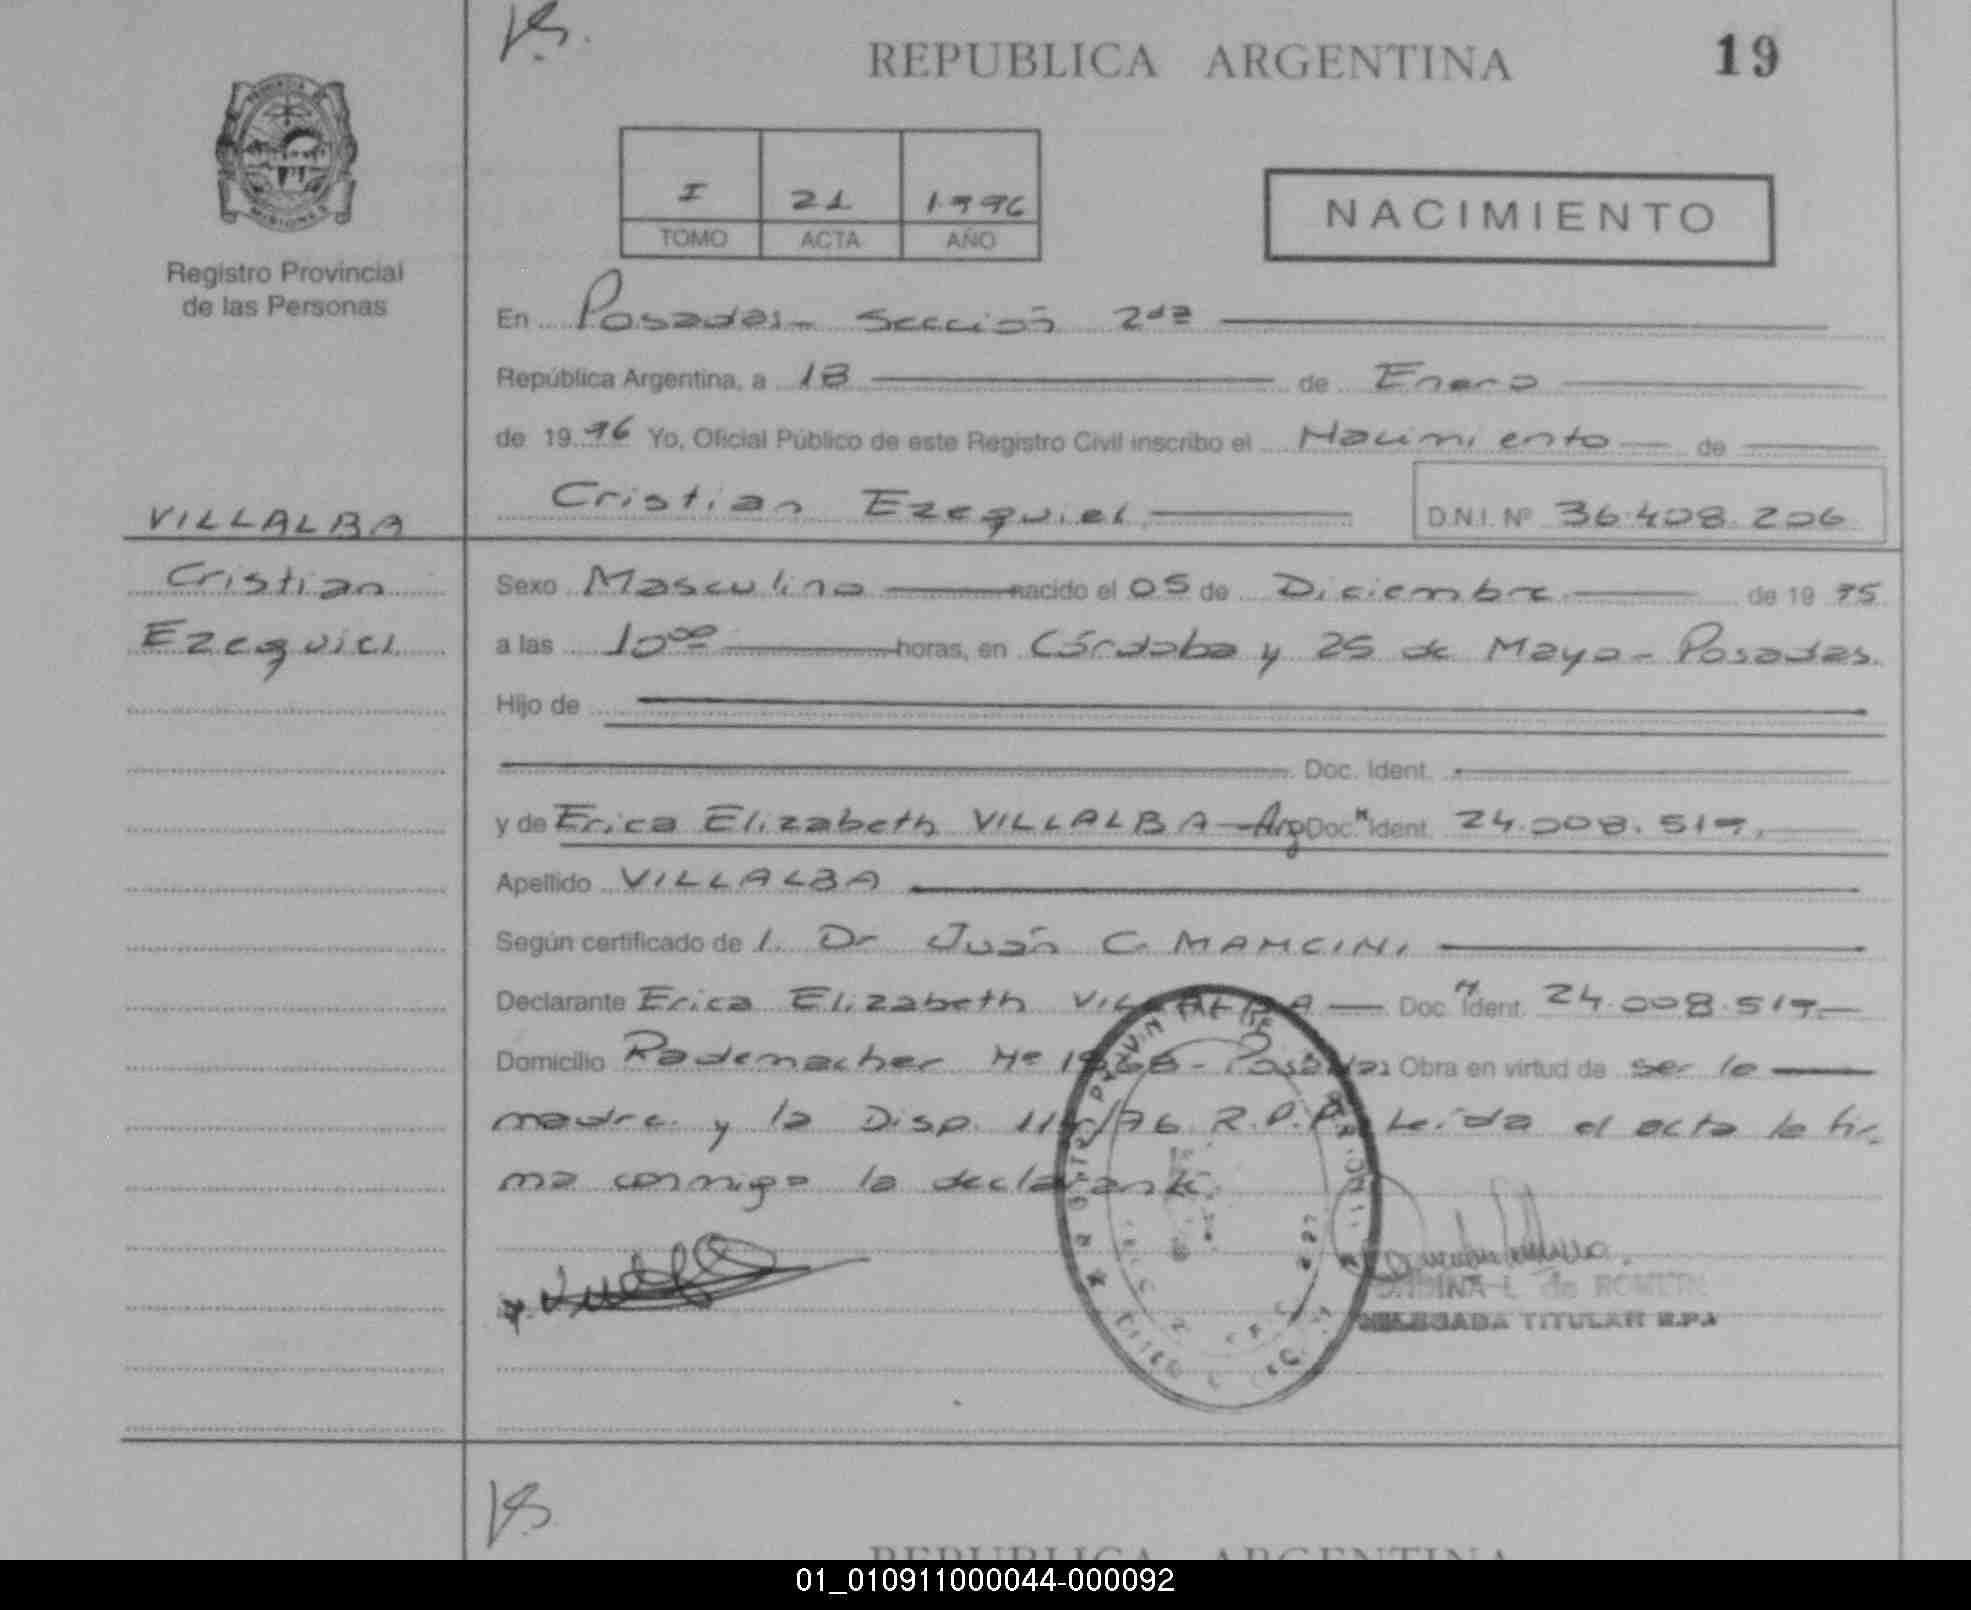 REPUBLICA ARGENTINA 19
I 21 1996
TOMO ACTA AÑO
NACIMIENTO
Registro Provincial
de las Personas
En Posadas - Sección 2da
República Argentina, a 18 de Enero
de 1996 Yo, Oficial Público de este Registro Civil inscribo el Nacimiento de
VILLALBA
Cristian
Ezequiel
Cristian Ezequiel D.N.I. Nº 36.408.206
Sexo Masculino nacido el 05 de Diciembre de 19 95
a las 10 00 horas, en Córdoba y 25 de Mayo - Posadas.
Hijo de
Doc. Ident.
y de Erica Elizabeth VILLALBA - Arg Doc. Ident. 24.008.519.
Apellido VILLALBA
Según certificado de l. Dr Juan C. MANCINI
Declarante Erica Elizabeth VILLALBA Doc Ident. 24.008.519
Domicilio Rademacher Nº - Posadas Obra en virtud de ser la
madre y la Disp. /96 R.P.P. Leída el acta la fir
ma conmigo la declarante.
L. de
DELEGADA TITULAR R.P.P.
REPUBLICA ARGENTINA
01_010911000044-000092